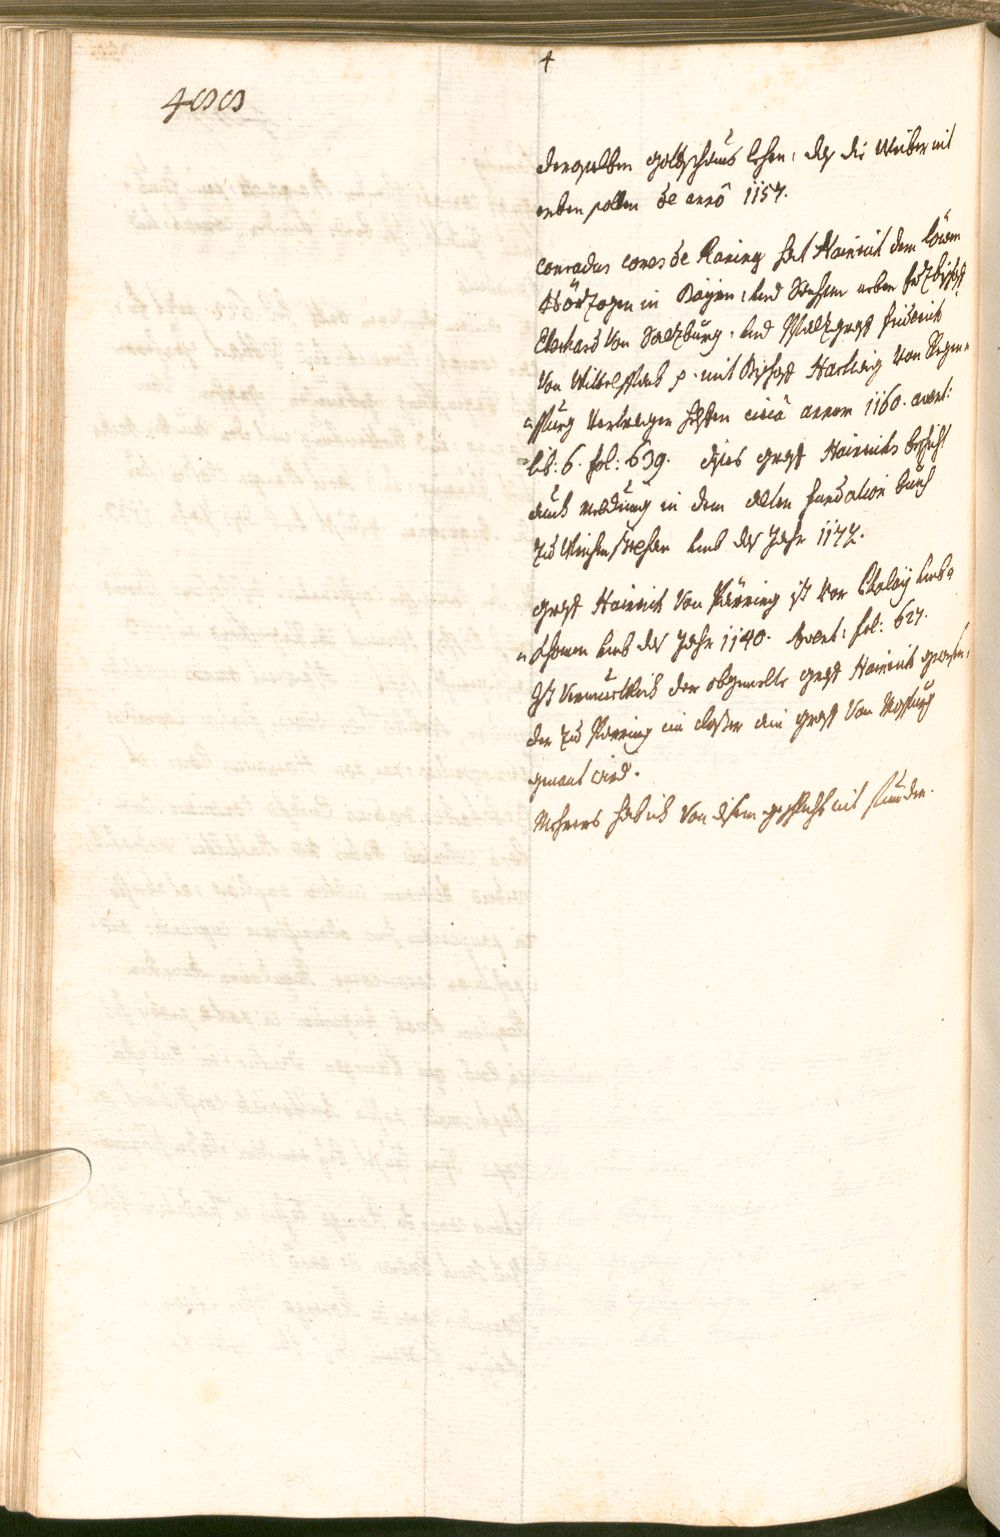 4
488
derselben gottshaus lehen, das die Weiber nit
erben sollen de anno 1157.
Conradus comes de Roning hat Hainrich dem löwen
Hörzogen in Bayrn, und Sachsen neben Erzbischof
Eberhard von Salzburg, und Pfalzgraf friderich
von Wittelspach p. mit Bischof Hartwig von Regen=
=spurg vertragen helfen circa annum 1160. avent:
lib: 6. fol: 639. dises graf Hainrichs beschicht
auch meldung in dem alten fundation buch
zu Weichenstephan umb das Jahr 1172.
graf Hainrich von Rönning ist vor Valay umb=
=khomen umb das Jahr 1140. Avent: fol: 627.
Ist vermuetlich der obgemelte graf Hainrich gewesen,
der zu Roning im closter ain graf von
genant wird.
Mehrers hab ich von disem geschlecht nit funden.